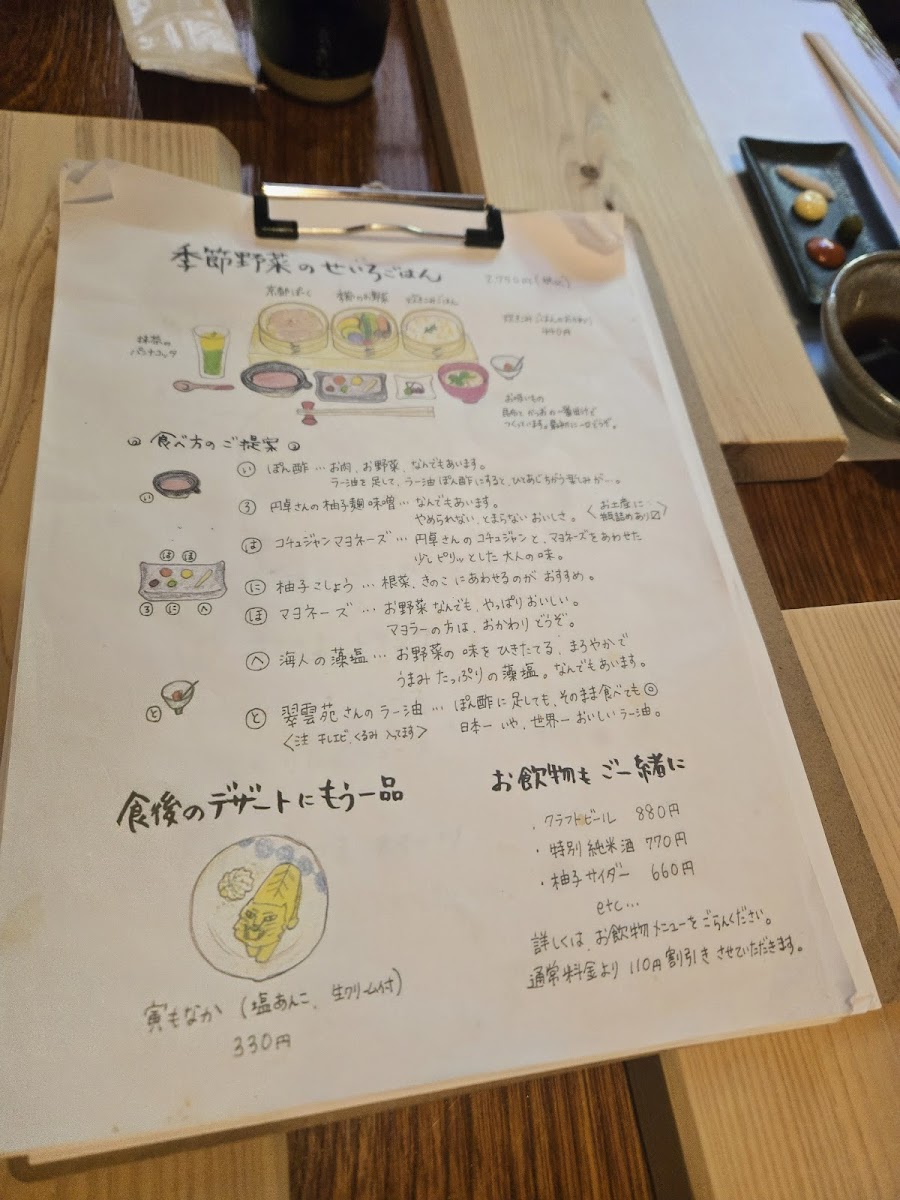 季節野菜のせいろごはん
2750円(税込)
京都ぽーく
旬のお野菜
炊きこみごはん
炊きこみごはんのおかわり
440円
抹茶の
パンナコッタ
お吸いもの
昆布とかつおの一番出汁で
つくっています。最初に一口どうぞ。
食べ方のご提案
い ぽん酢…お肉、お野菜、なんでもあいます。
ラー油を足して、ラー油ぽん酢にすると、ひとあじちがう楽しみが…。
い
ろ 円卓さんの柚子麹味噌…なんでもあいます。
やめられない、とまらないおいしさ。
〈お土産に…
瓶詰めあり〼〉
は コチュジャンマヨネーズ…円卓さんのコチュジャンと、マヨネーズをあわせた
少しピリッとした大人の味。
は ほ
ろ に へ
に 柚子こしょう…根菜、きのこにあわせるのがおすすめ。
ほ マヨネーズ…お野菜なんでも、やっぱりおいしい。
マヨラーの方は、おかわりどうぞ。
へ 海人の藻塩…お野菜の味をひきたてる、まろやかで
うまみたっぷりの藻塩。なんでもあいます。
と
と 翠雲苑さんのラー油…ぽん酢に足しても、そのまま食べても◎
〈注 干しエビ、くるみ入ってます〉
日本一いや、世界一おいしいラー油。
食後のデザートにもう一品
寅もなか(塩あんこ、生クリーム付)
330円
お飲物もご一緒に
・クラフトビール 880円
・特別純米酒 770円
・柚子サイダー 660円
etc…
詳しくは、お飲物メニューをごらんください。
通常料金より110円割引きさせていただきます。